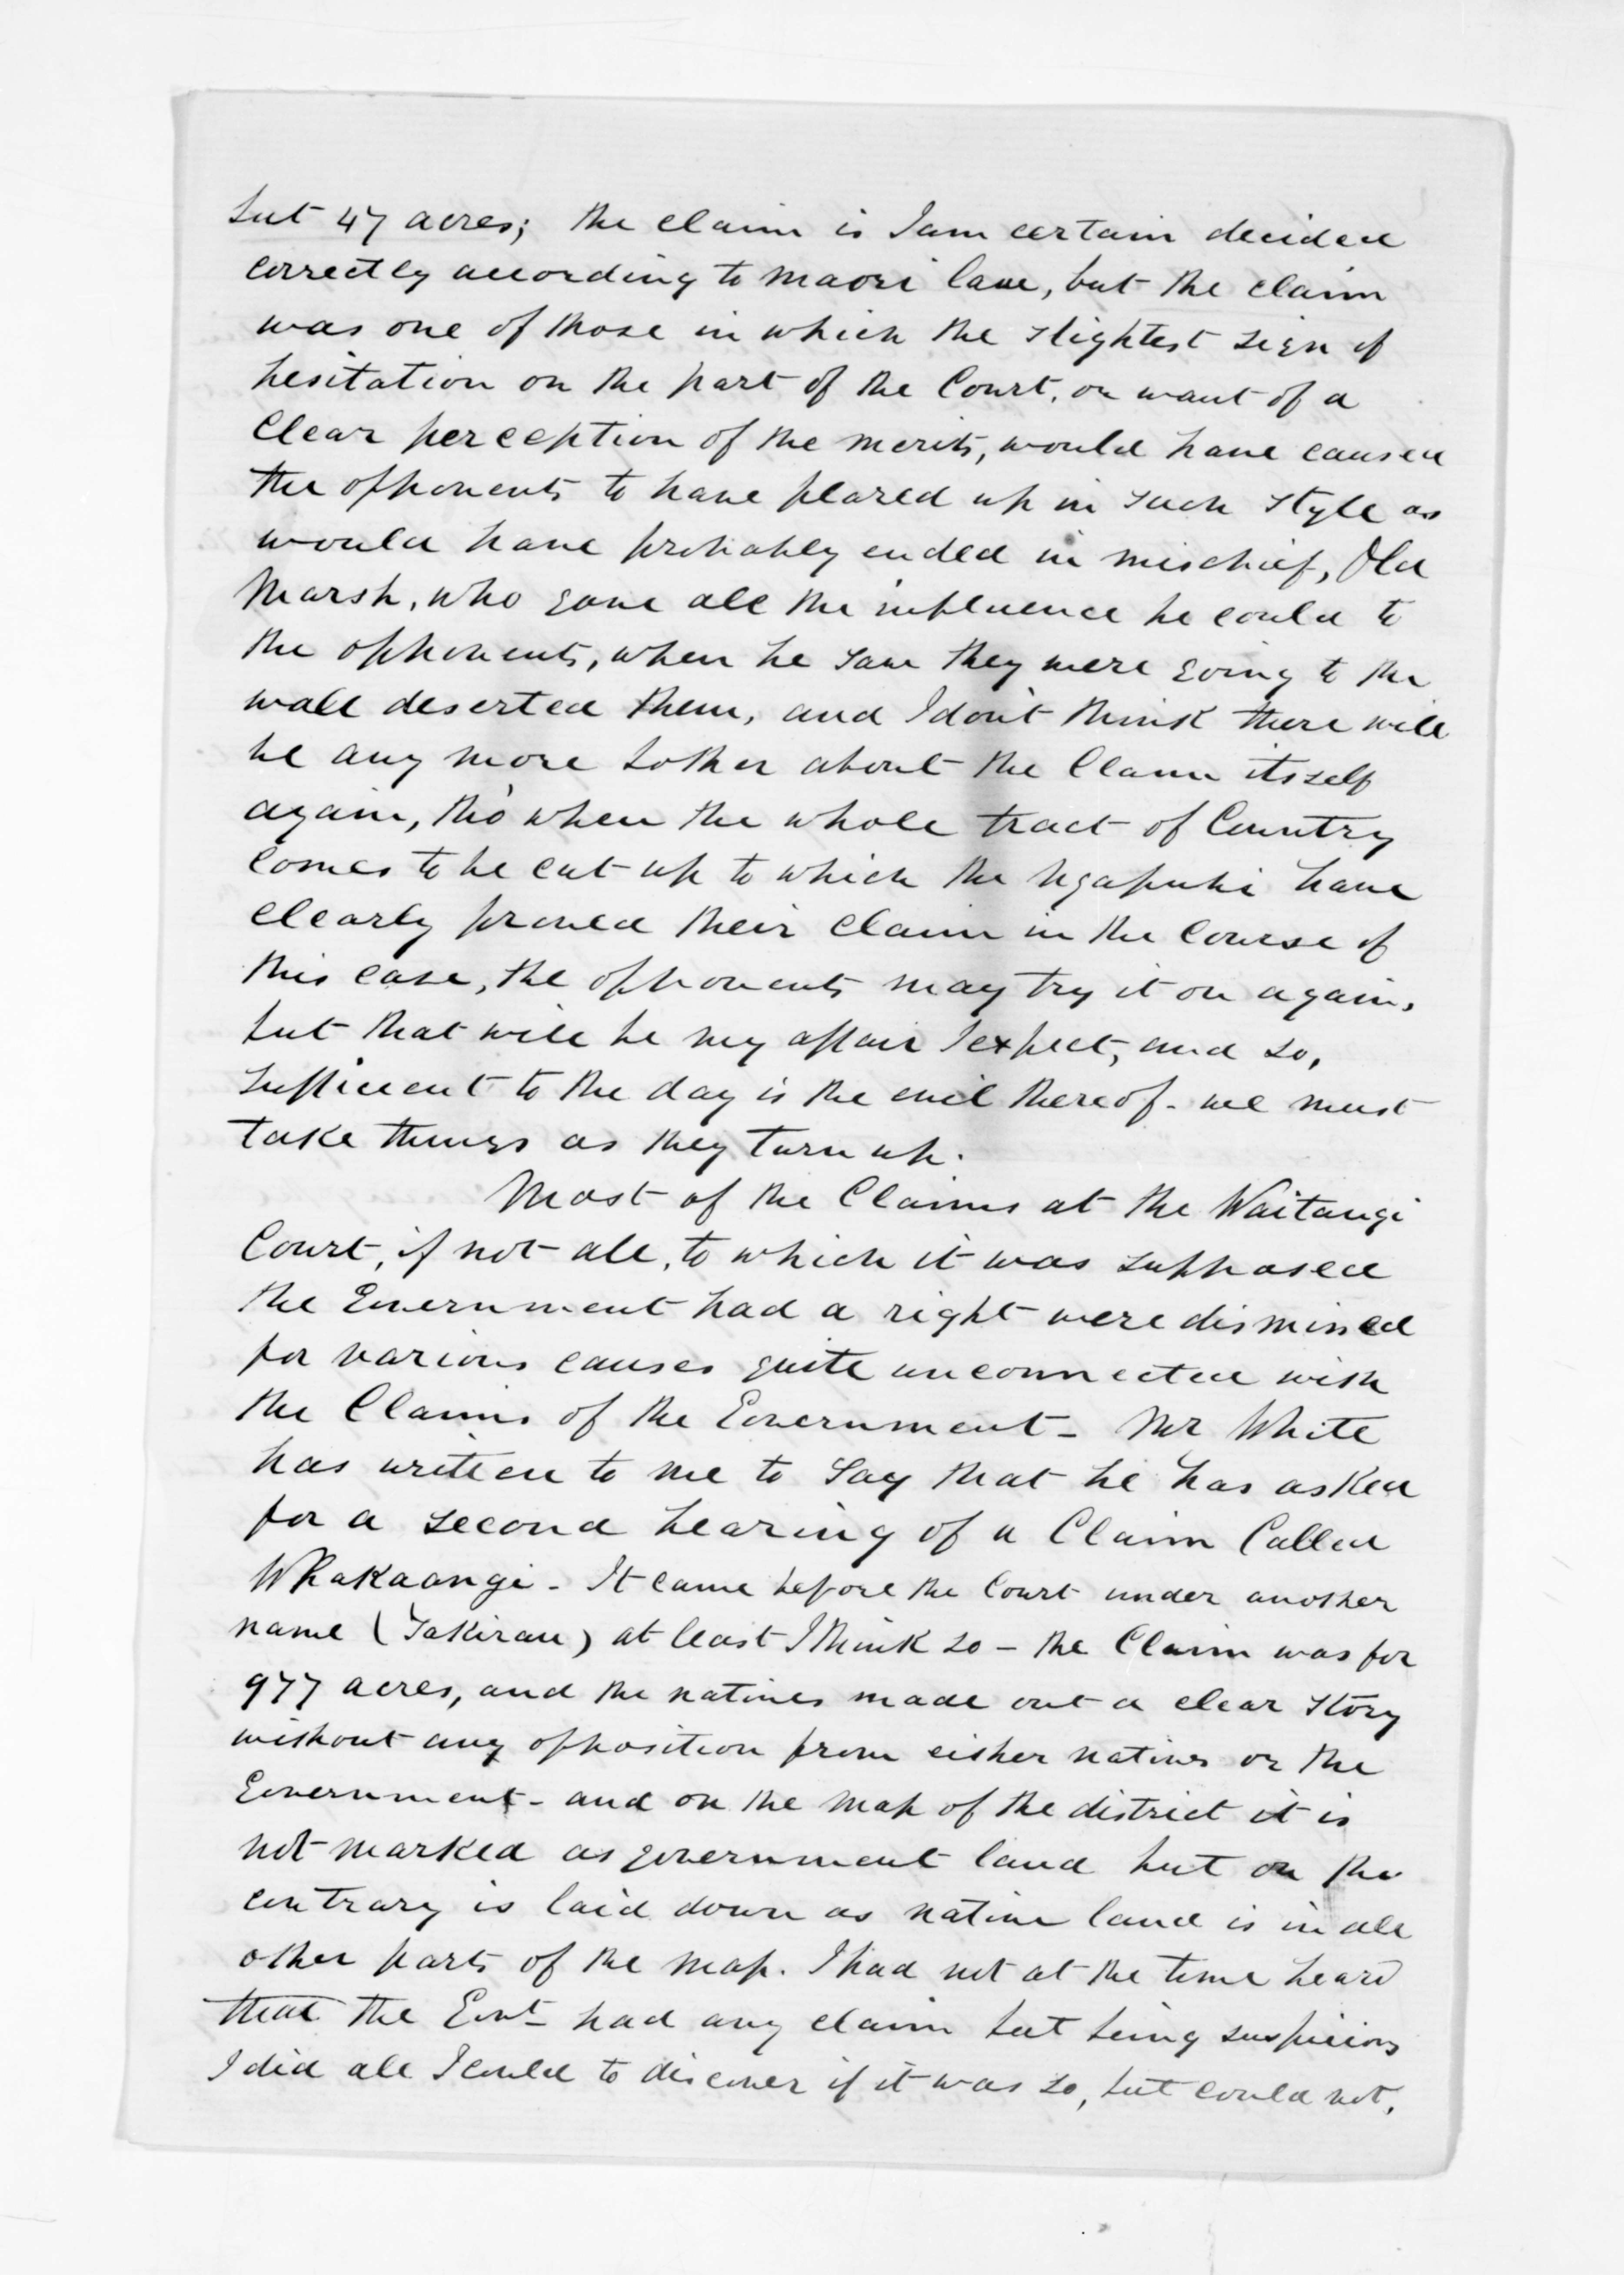 but 47 acres; the claim is I am certain decided
correctly according to maori law, but the claim
was one of those in which the slightest sign of
hesitation on the part of the Court, or want of a
clear perception of the merits, would have caused
the opponents to have flared up in such style as
would have probably ended in mischief, Old
Marsh, who gave all the influence he could to
the opponents, when he saw they were going to the
wall deserted them, and I don't think there will
be any more bother about the Claim itsself
again, tho' when the whole tract of Country
comes to be cut up to which the Ngapuhi have
clearly proved their claim in the course of
this case, the opponents may try it on again,
but that will be my affair I expect, and so,
sufficient to the day is the evil thereof - we must
take things as they turn up.
Most of the Claims at the Waitangi
Court, if not all, to which it was supposed
the Government had a right were dismissed
for various causes quite unconnected with
the Claims of the Government - Mr White
has written to me to say that he has asked
for a second hearing of a Claim Called
Whakaangi - It came before the Court under another
name (Takirau) at least I think so - the Claim was for
977 acres, and the natives made out a clear story
without any opposition from either natives or the
Government - and on the map of the district it is
not marked as government land but on the
contrary is laid down as native land is in all
other parts of the map. I had not at the time heard
that the Govt had any claim but being suspicious
I did all I could to discover if it was so, but could not,